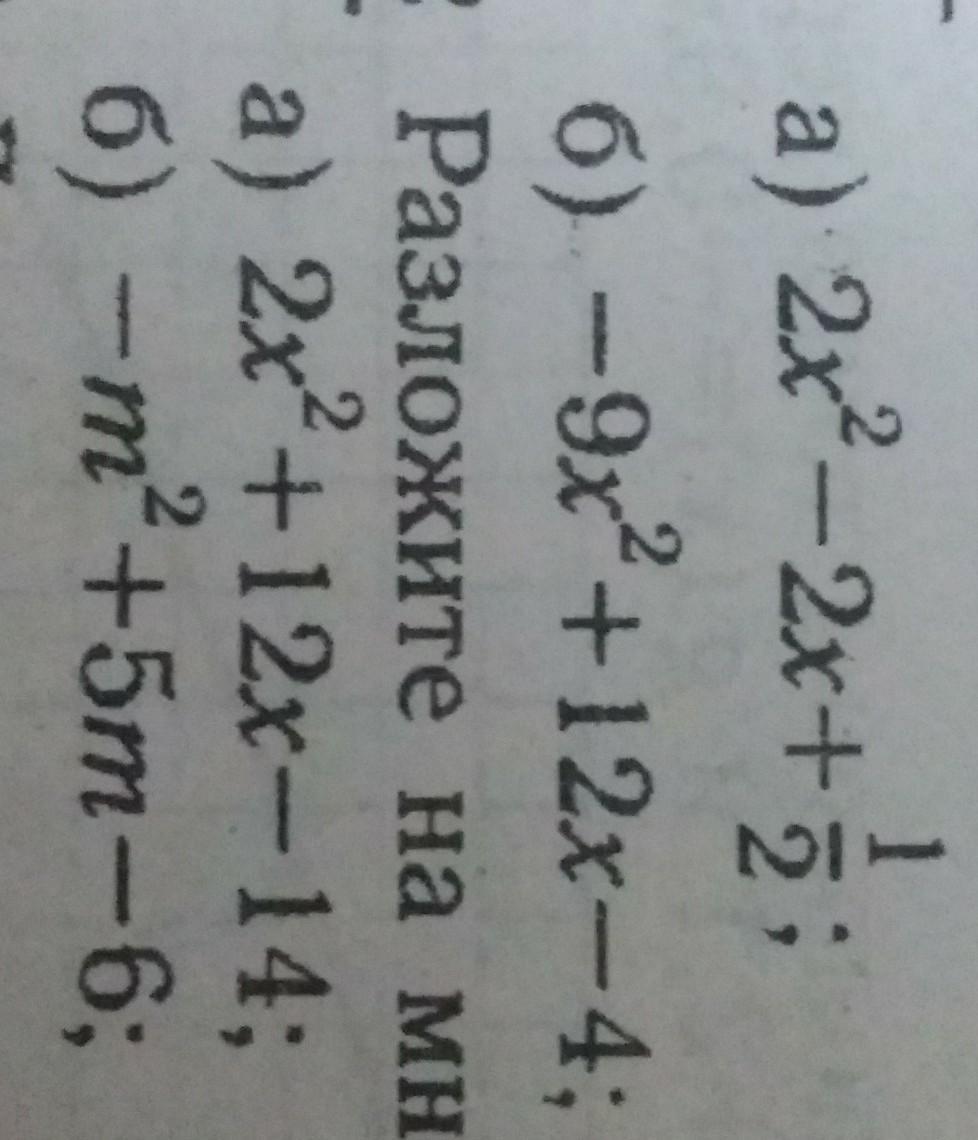 а) 2x² − 2x + 1/2;
б) −9x² + 12x − 4;
Разложите на мн
а) 2x² + 12x − 14;
б) −m² + 5m − 6;